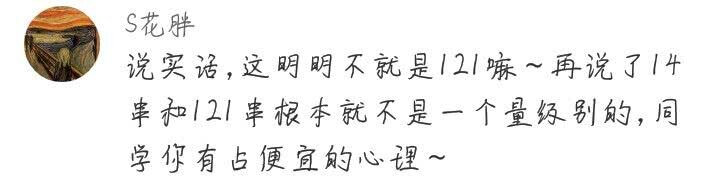 S花胖
说实话,这明明不就是121嘛~再说了14
串和121串根本就不是一个量级别的,同
学你有占便宜的心理~